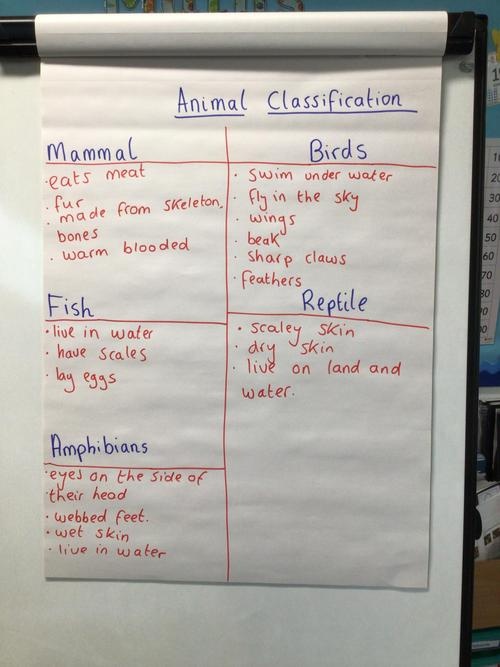 Animal Classification
Mammal
· eats meat
· fur
· made from skeleton,
bones
· warm blooded
Birds
· Swim under water
· fly in the sky
· wings
· beak
· sharp claws
· feathers
Fish
· live in water
· have scales
· lay eggs
Reptile
· scaley skin
· dry skin
· live on land and
water.
Amphibians
· eyes on the side of
· their head
· webbed feet.
· wet skin
· live in water